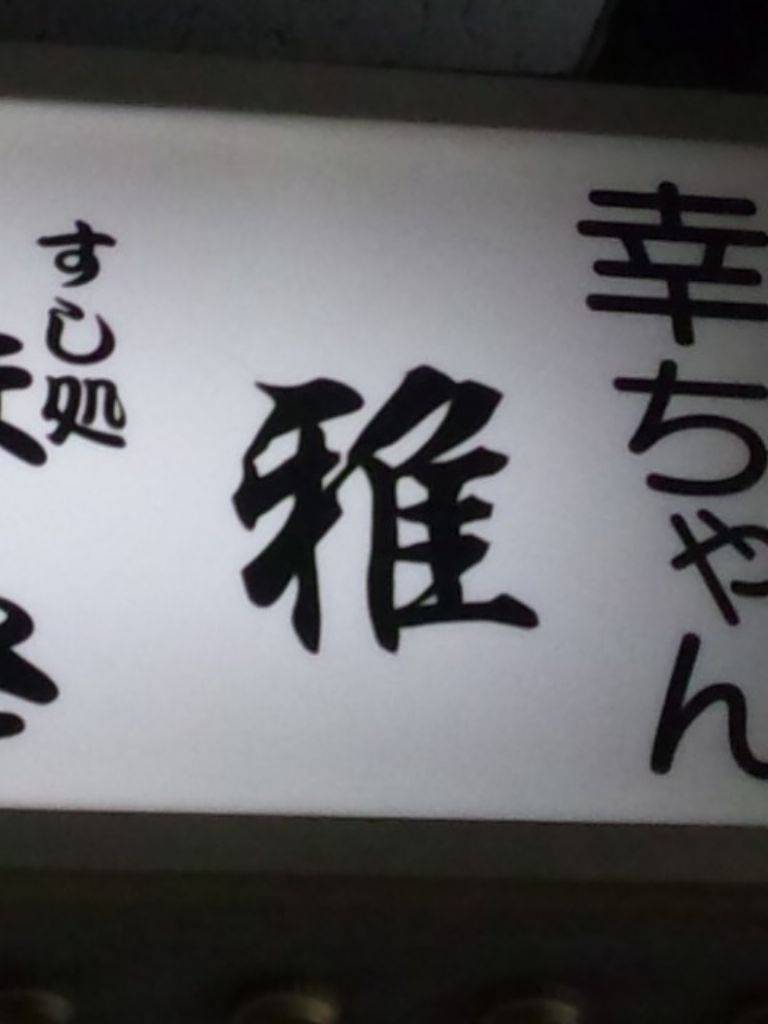 幸ちゃん
雅
すし処